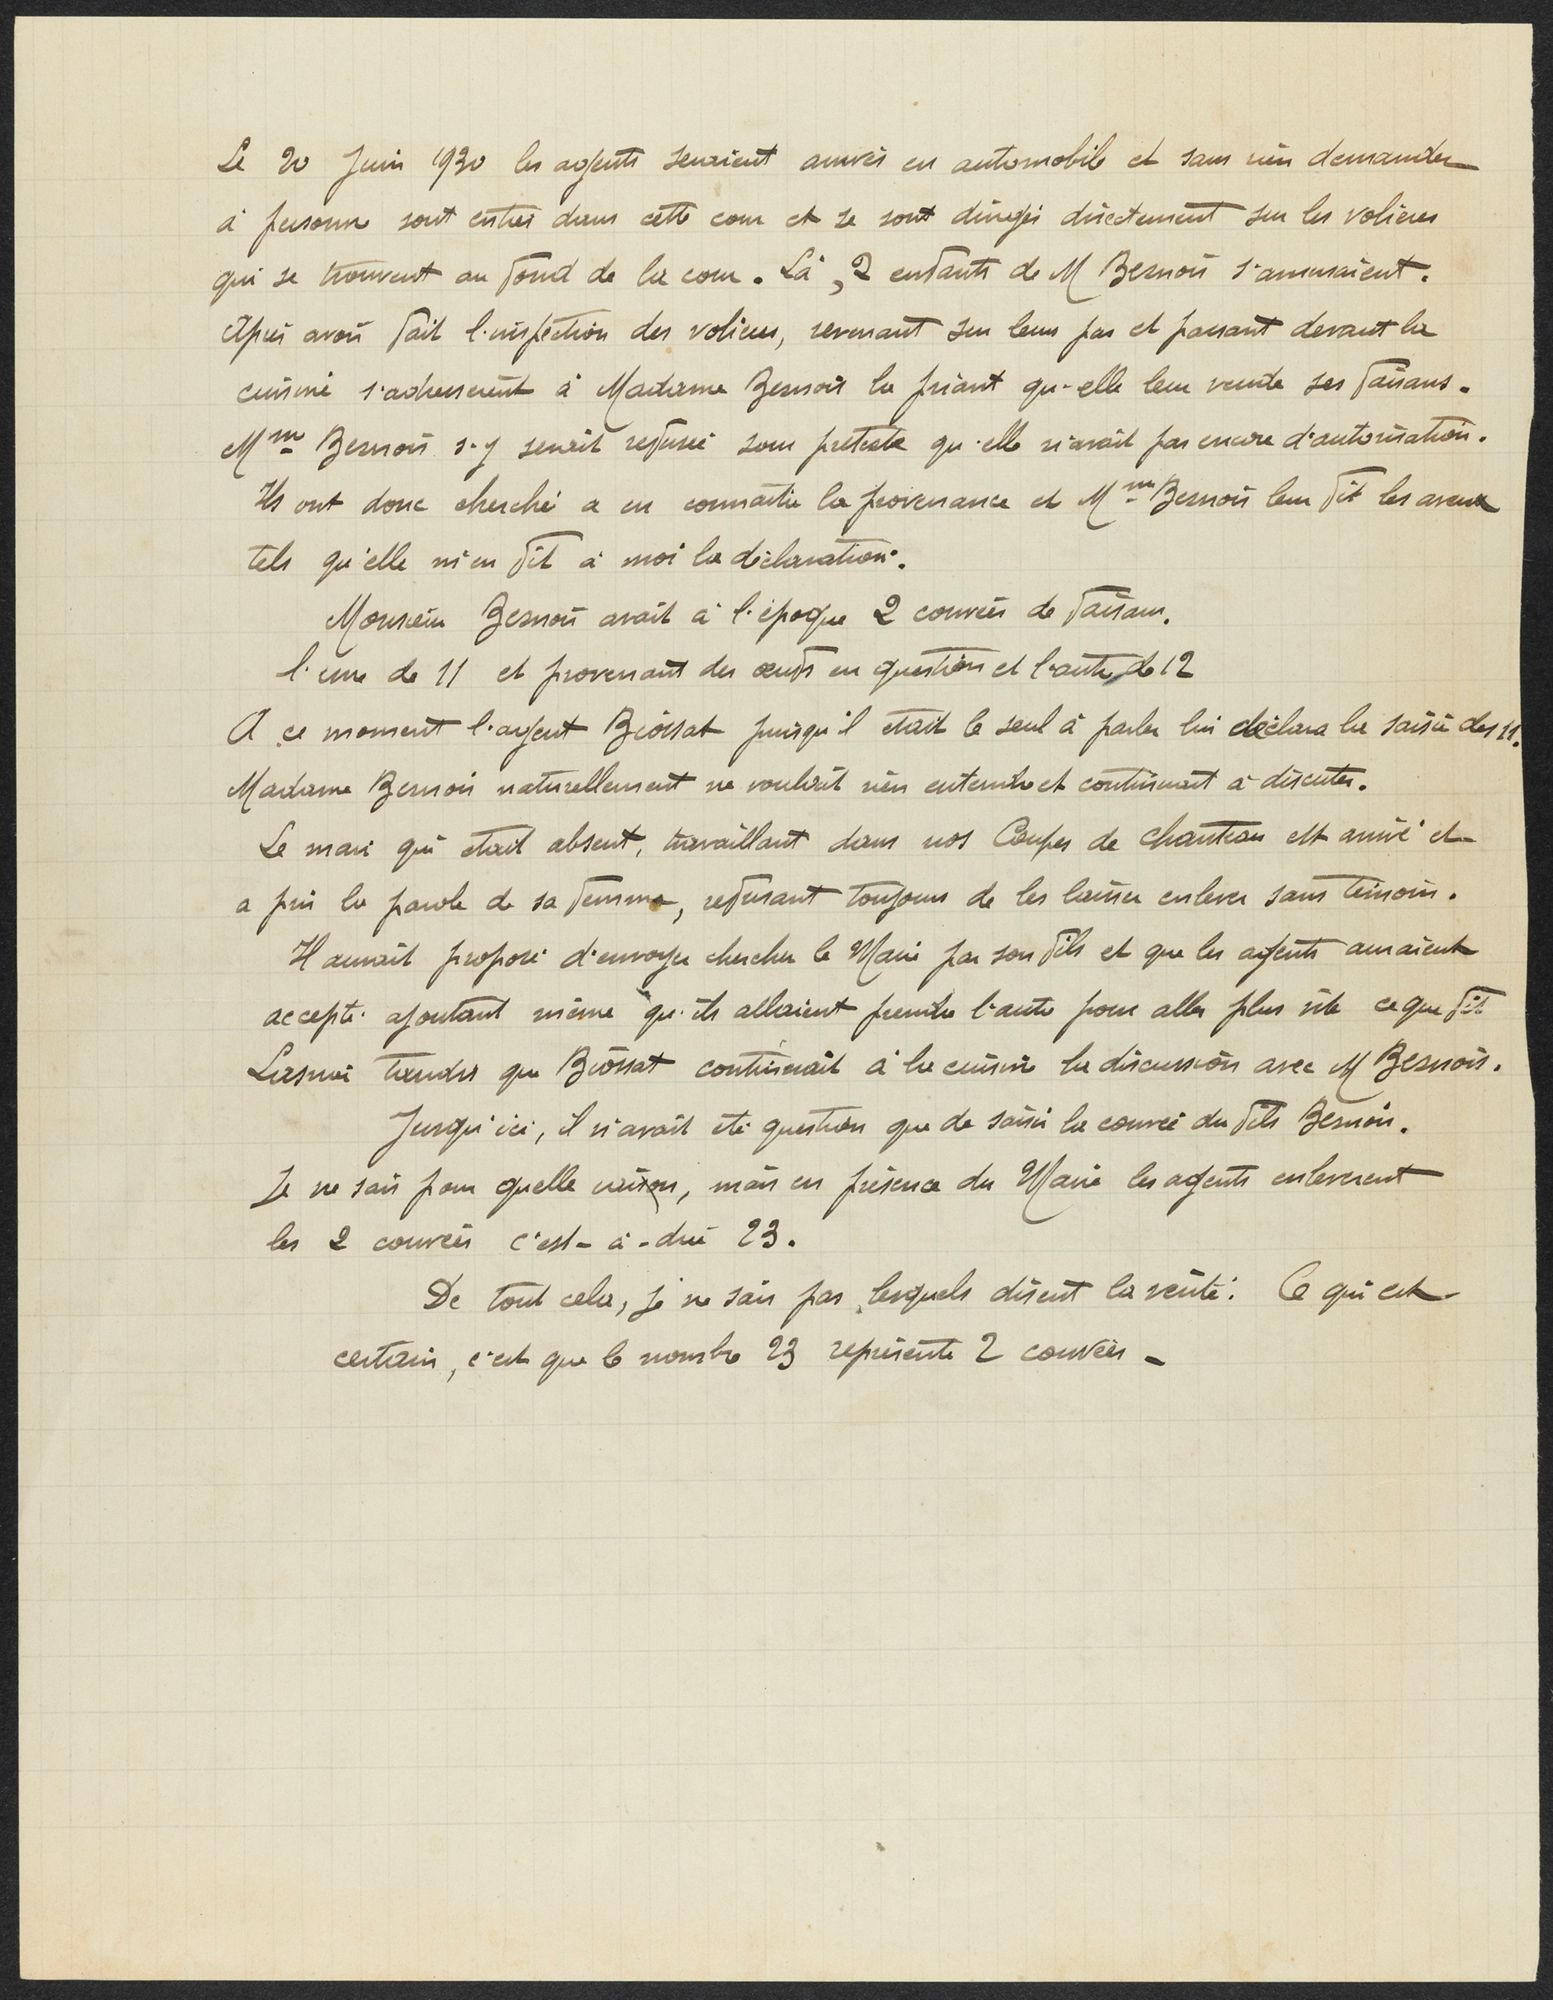 Le 20 Juin 1930 les agents seraient arrivés en automobile et sans rien demander
à personne sont entrés dans cette cour et se sont dirigés directement sur les volières
qui se trouvent au fond de la cour. Là, 2 enfants de M Besnois s'amusaient.
Après avoir fait l'inspection des volières, revenant sur leurs pas et passant devant la
cuisine s'adressèrent à Madame Besnois la priant qu'elle leur vende ses faisans.
Mme Besnois s'y serait refusée sous prétexte qu'elle n'avait pas encore d'autorisation.
Ils ont donc cherché a en connaitre la provenance et Mme Besnois leur fit les aveux
tels qu'elle m'en fit à moi la déclaration.
Monsieur Besnois avait à l'époque 2 couvées de faisans.
l'une de 11 et provenant des oeufs en question et l'autre de 12
A ce moment l'agent Biossat puisqu'il était le seul à parler lui déclara la saisie des 11.
Madame Besnois naturellement ne voulait rien entendre et continuait à discuter.
Le mari qui était absent, travaillant dans nos Coupes de Chanteau est arrivé et
a pris la parole de sa femme, refusant toujours de les laisser enlever sans témoins.
Il aurait proposé d'envoyer chercher le Maire par son fils et que les agents auraient
accepté ajoutant même qu'ils allaient prendre l'auto pour aller plus vite ce que fit
tandis que Biossat continuait à la cuisine la discussion avec M Besnois.
Jusqu'ici, il n'avait été question que de saisir la couvée du fils Besnois.
Je ne sais pour quelle raison, mais en présence du Maire les agents enleverent
les 2 couvées c'est-à-dire 23.
De tout cela, je ne sais pas lesquels disent la vérité. Ce qui est
certain, c'est que le nombre 23 représente 2 couvées -